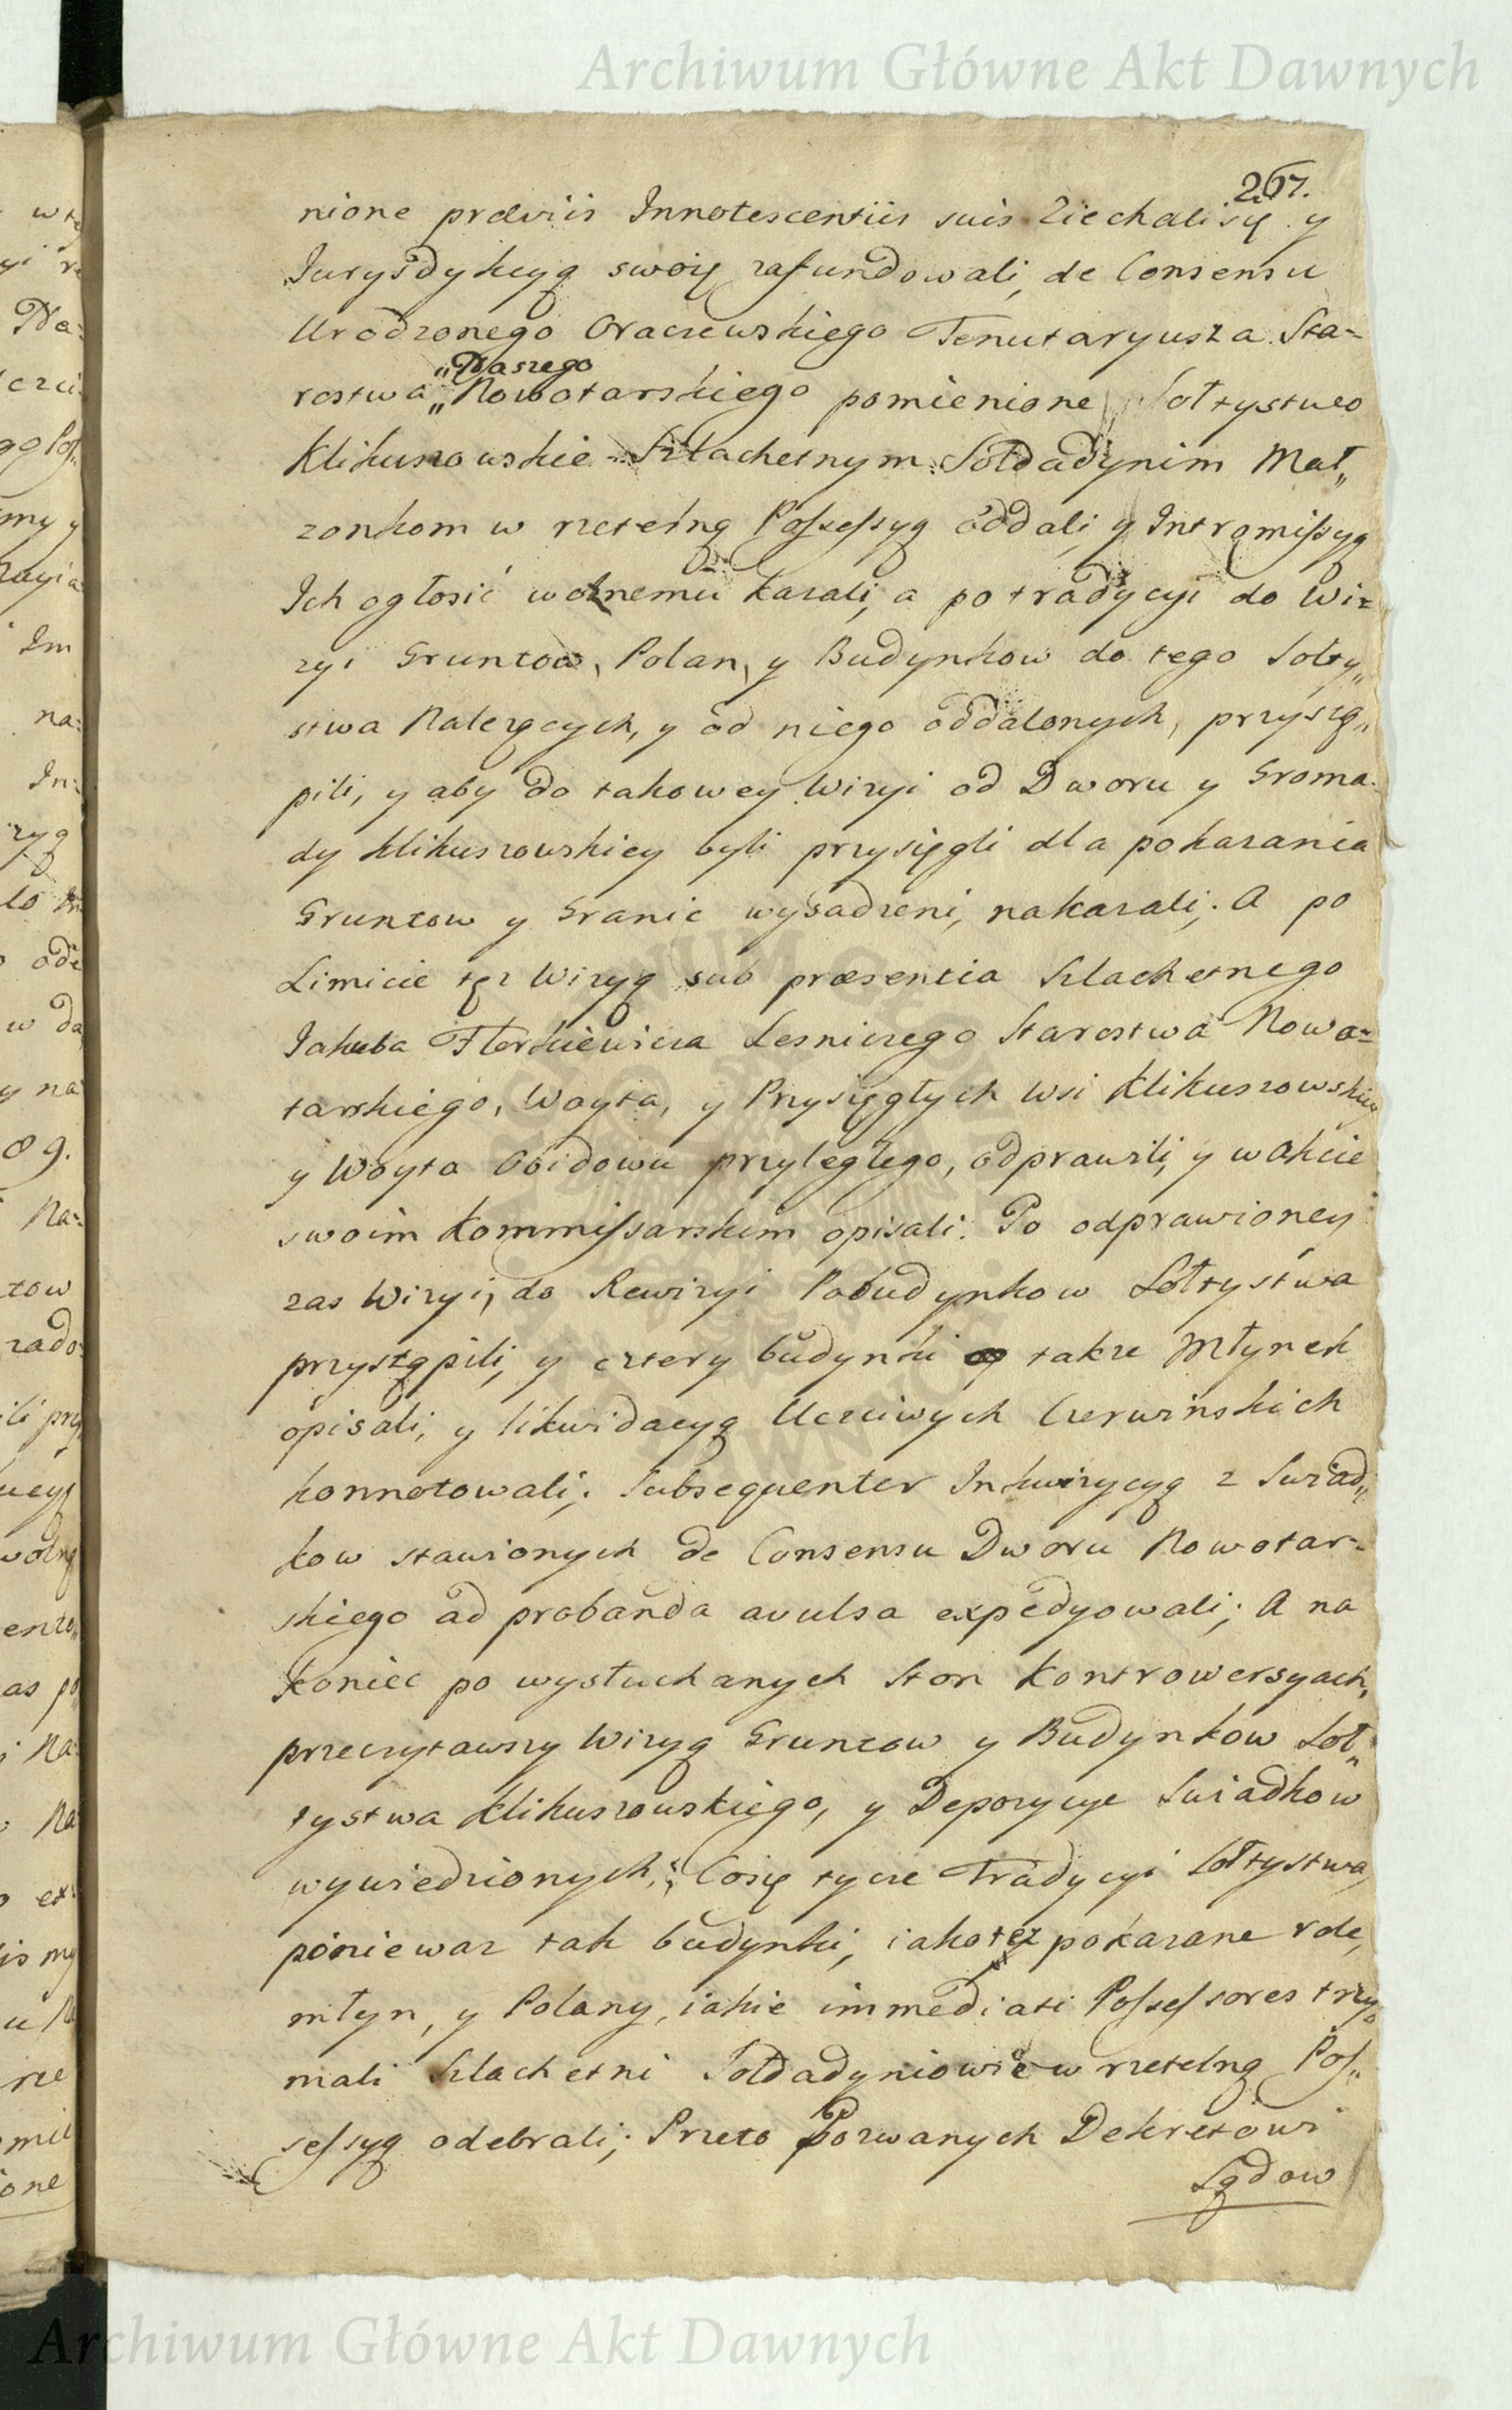 Archiwum Główne Akt Dawnych
267.
nione præviis Innotescentiis suis Ziechali się y
Jurysdykcyą swoię zafundowali, de Consensu
Urodzonego Oraczewskiego Tenutaryusza Sta-
„Naszego
rostwa „ Nowotarskiego pomienione Sołtystwo
Klikuszowskie Szlachetnym Sołdadynim Mał„
zonkom w rzetelną Possessyą oddali, y Intromissyą
Ich ogłosić woźnemu kazali, a po tradycyi do Wi-
zyi Gruntow, Polan, y Budynkow do tego Sołty„
stwa Nalezących, y od niego oddalonych, przystą„
pili, y aby do takowey Wizyi od Dworu y Groma-
dy Klikuszowskiey byli przysięgli dla pokazania
Gruntow y Granic wysadzeni, nakazali; A po
Limicie tęz Wizyą sub præsentia Szlachetnego
Jakuba Florkiewicza Lesniczego Starostwa Nowo-
tarskiego, Woyta, y Przysięgłych Wsi Klikuszowskiey
y Woyta Obidowu przyległego, odprawili, y w Akcie
swoim Kommissarskim opisali. Po odprawioney
zas Wizyi, do Rewizyi Pobudynkow Sołtystwa
przystąpili, y cztery budynki takze Młynek
opisali, y likwidacyą Uczciwych Czerwinskich
konnotowali; Subsequenter Inkwizycyą z Swiad„
kow stawionych de Consensu Dworu Nowotar-
skiego ad probanda avulsa expedyowali; A na
koniec po wysłuchanych Stron Kontrowersyach,
przeczytawszy Wizyą Gruntow y Budynkow Soł„
tystwa Klikuszowskiego, y Depozycye Swiadkow
wywiedzionych; Cosię tycze Tradycyi Sołtystwa,
poniewaz tak budynki, iakotez pokazane role,
młyn, y Polany, iakie immediati Possessores trzy„
mali Szlachetni Sołdadyniowie w rzetelną Pos„
sessyą odebrali; Przeto Pozwanych Dekretowi
Sądow
Archiwum Główne Akt Dawnych